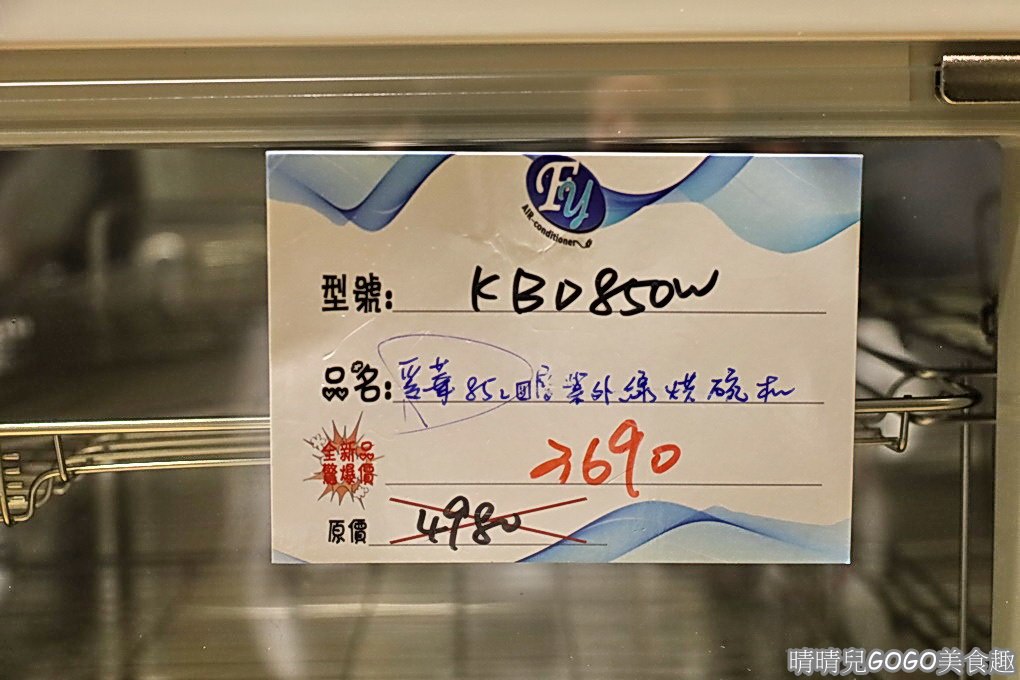 Fy
AIR-conditioner
型號: KBD850W
品名: 85L四層紫外線烘碗机
全新品
驚爆價
3690
原價 4980
晴晴兒GOGO美食趣